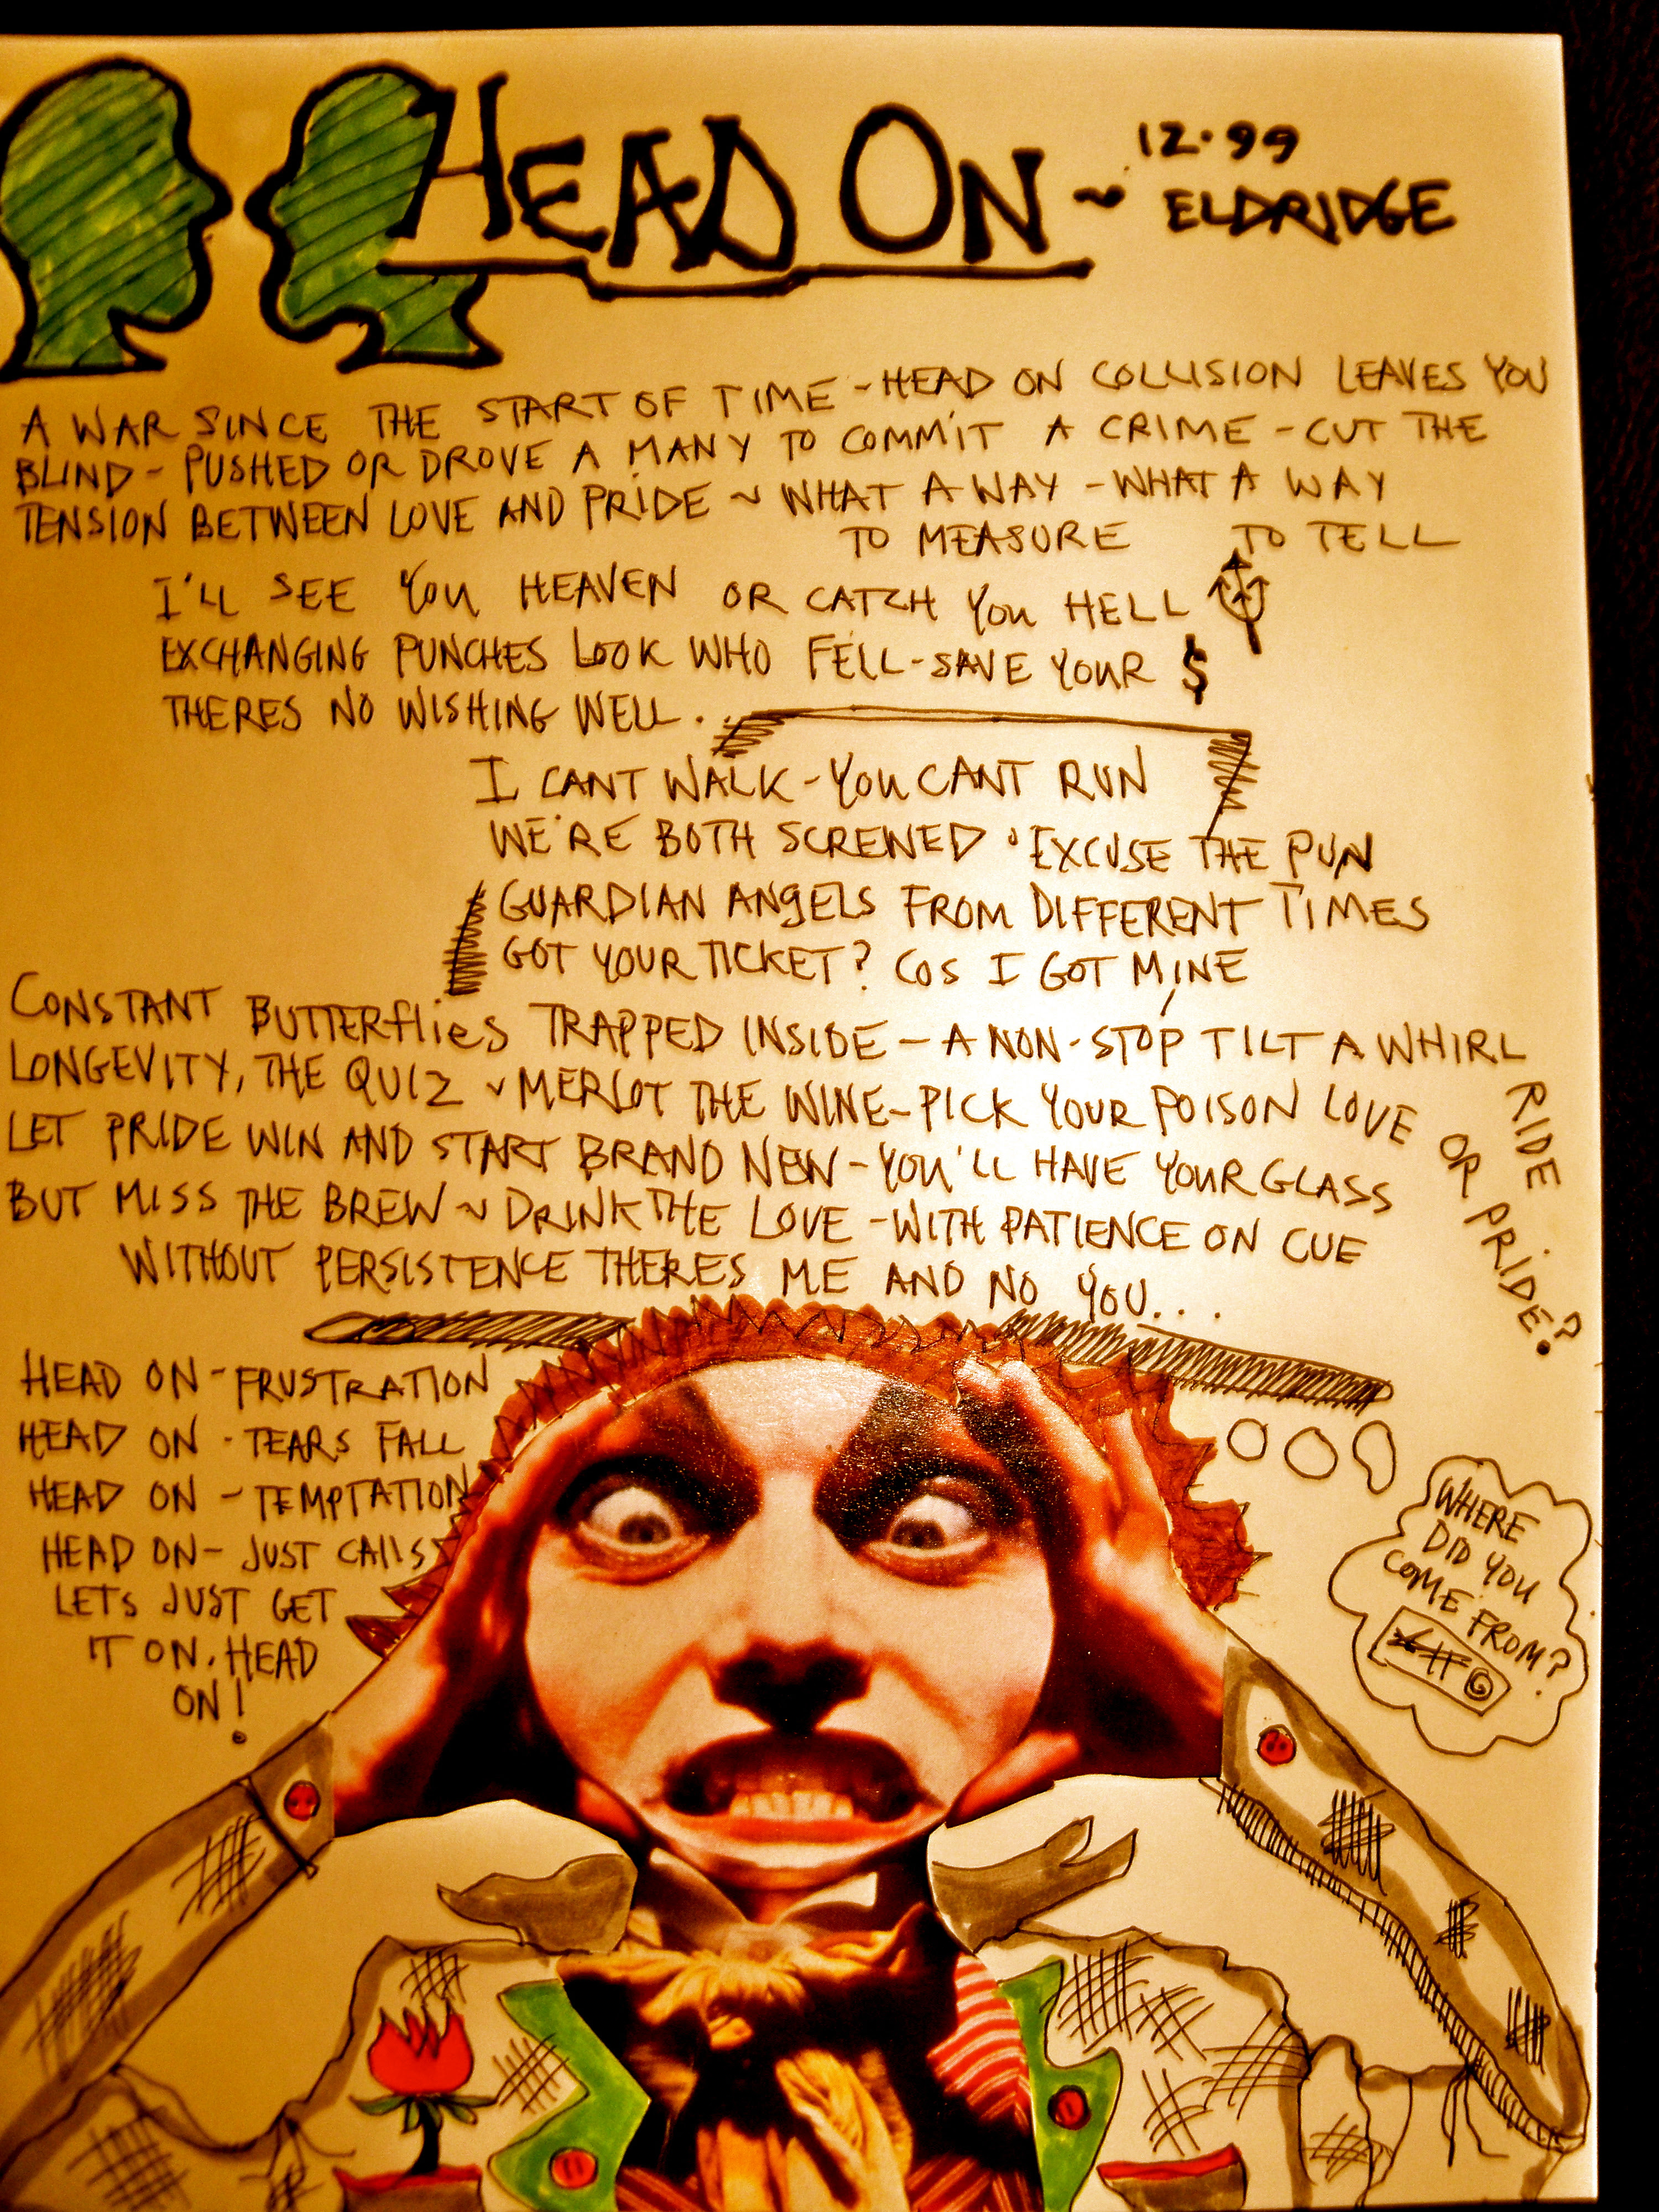 HEAD ON ~ 12.99
ELDRIDGE
A WAR SINCE THE START OF TIME - HEAD ON COLLISION LEAVES YOU
BLIND - PUSHED OR DROVE A MANY TO COMMIT A CRIME - CUT THE
TENSION BETWEEN LOVE AND PRIDE ~ WHAT A WAY - WHAT A WAY
TO MEASURE TO TELL
I'LL SEE YOU HEAVEN OR CATCH YOU HELL
EXCHANGING PUNCHES LOOK WHO FELL - SAVE YOUR $
THERES NO WISHING WELL...
I CANT WALK - YOU CANT RUN
WE'RE BOTH SCREWED · EXCUSE THE PUN
GUARDIAN ANGELS FROM DIFFERENT TIMES
GOT YOUR TICKET? COS I GOT MINE
CONSTANT BUTTERFLIES TRAPPED INSIDE - A NON-STOP TILT A WHIRL RIDE
LONGEVITY, THE QUIZ ~ MERLOT THE WINE - PICK YOUR POISON LOVE OR PRIDE?
LET PRIDE WIN AND START BRAND NEW - YOU'LL HAVE YOUR GLASS
BUT MISS THE BREW ~ DRINK THE LOVE - WITH PATIENCE ON CUE
WITHOUT PERSISTENCE THERES ME AND NO YOU...
HEAD ON - FRUSTRATION
HEAD ON - TEARS FALL
HEAD ON - TEMPTATION
HEAD ON - JUST CALLS
LETS JUST GET
IT ON. HEAD
ON!
WHERE
DID YOU
COME FROM?